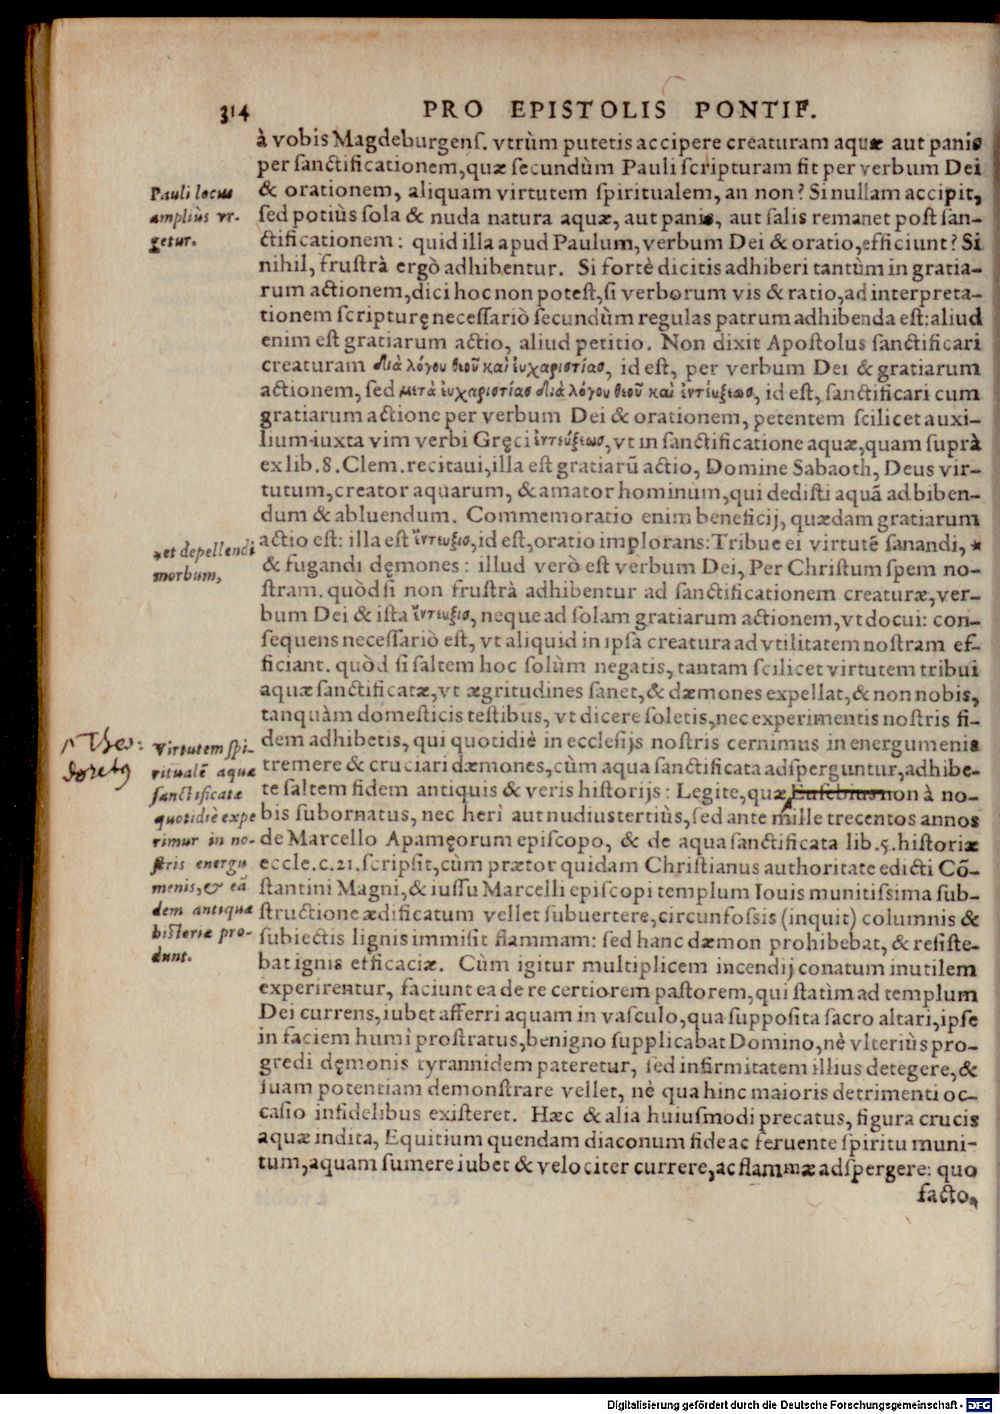 314 PRO EPISTOLIS PONTIF.
à vobis Magdeburgenſ. vtrùm putetis accipere creaturam aquæ aut panis
per ſanctificationem, quæ ſecundùm Pauli ſcripturam fit per verbum Dei
& orationem, aliquam virtutem ſpiritualem, an non? Si nullam accipit,
ſed potiùs ſola & nuda natura aquæ, aut panis, aut ſalis remanet poſt ſan-
ctificationem: quid illa apud Paulum, verbum Dei & oratio, efficiunt? Si
nihil, fruſtrà ergò adhibentur. Si fortè dicitis adhiberi tantùm in gratia-
rum actionem, dici hoc non poteſt, ſi verborum vis & ratio, ad interpreta-
tionem ſcripturę neceſſariò ſecundùm regulas patrum adhibenda eſt: aliud
enim eſt gratiarum actio, aliud petitio. Non dixit Apoſtolus ſanctificari
creaturam διὰ λόγου θεοῦ καὶ ἐυχαριστίας, id eſt, per verbum Dei & gratiarum
actionem, ſed μετὰ ἐυχαριστίας διὰ λόγου θεοῦ καὶ ἐντέυξεως, id eſt, ſanctificari cum
gratiarum actione per verbum Dei & orationem, petentem ſcilicet auxi-
lium iuxta vim verbi Gręci ἐντεύξεως, vt in ſanctificatione aquæ, quam ſuprà
ex lib. 8. Clem. recitaui, illa eſt gratiarū actio, Domine Sabaoth, Deus vir-
tutum, creator aquarum, & amator hominum, qui dediſti aquā ad biben-
dum & abluendum. Commemoratio enim beneficij, quædam gratiarum
actio eſt: illa eſt ἔντευξις, id eſt, oratio implorans: Tribue ei virtutē ſanandi, *
& fugandi dęmones: illud verò eſt verbum Dei, Per Chriſtum ſpem no-
ſtram. quòd ſi non fruſtrà adhibentur ad ſanctificationem creaturæ, ver-
bum Dei & iſta ἔντευξις, neque ad ſolam gratiarum actionem, vt docui: con-
ſequens neceſſariò eſt, vt aliquid in ipſa creatura ad vtilitatem noſtram ef-
ficiant. quòd ſi ſaltem hoc ſolùm negatis, tantam ſcilicet virtutem tribui
aquæ ſanctificatæ, vt ægritudines ſanet, & dæmones expellat, & non nobis,
tanquàm domeſticis teſtibus, vt dicere ſoletis, nec experimentis noſtris fi-
dem adhibetis, qui quotidiè in eccleſijs noſtris cernimus in energumenis
tremere & cruciari dæmones, cùm aqua ſanctificata adſperguntur, adhibe-
te ſaltem fidem antiquis & veris hiſtorijs: Legite, quæ Euſebius non à no-
bis ſubornatus, nec herì aut nudiuſtertiùs, ſed ante mille trecentos annos
de Marcello Apamęorum epiſcopo, & de aqua ſanctificata lib. 5. hiſtoriæ
eccle. c. 21. ſcripſit, cùm prætor quidam Chriſtianus authoritate edicti Cō-
ſtantini Magni, & iuſſu Marcelli epiſcopi templum Iouis munitiſſima ſub-
ſtructione ædificatum vellet ſubuertere, circunfoſſis (inquit) columnis &
ſubiectis lignis immiſit flammam: ſed hanc dæmon prohibebat, & reſiſte-
bat ignis efficaciæ. Cùm igitur multiplicem incendij conatum inutilem
experirentur, faciunt ea de re certiorem paſtorem, qui ſtatìm ad templum
Dei currens, iubet afferri aquam in vaſculo, qua ſuppoſita ſacro altari, ipſe
in faciem humi proſtratus, benigno ſupplicabat Domino, nè vlteriùs pro-
gredi dęmonis tyrannidem pateretur, ſed infirmitatem illius detegere, &
ſuam potentiam demonſtrare vellet, nè qua hinc maioris detrimenti oc-
caſio infidelibus exiſteret. Hæc & alia huiuſmodi precatus, figura crucis
aquæ indita, Equitium quendam diaconum fide ac feruente ſpiritu muni-
tum, aquam ſumere iubet & velociter currere, ac flammæ adſpergere: quo
facto,
Pauli locus
ampliùs vr-
getur.
*et depellendi
morbum,
Theo:
doretꝰ
Virtutem ſpi-
ritualē aquæ
ſanctificatæ
quotidiè expe
rimur in no-
ſtris energu
menis, & eā
dem antiquæ
hiſtoriæ pro-
dunt.
Digitalisierung gefördert durch die Deutsche Forschungsgemeinschaft - DFG